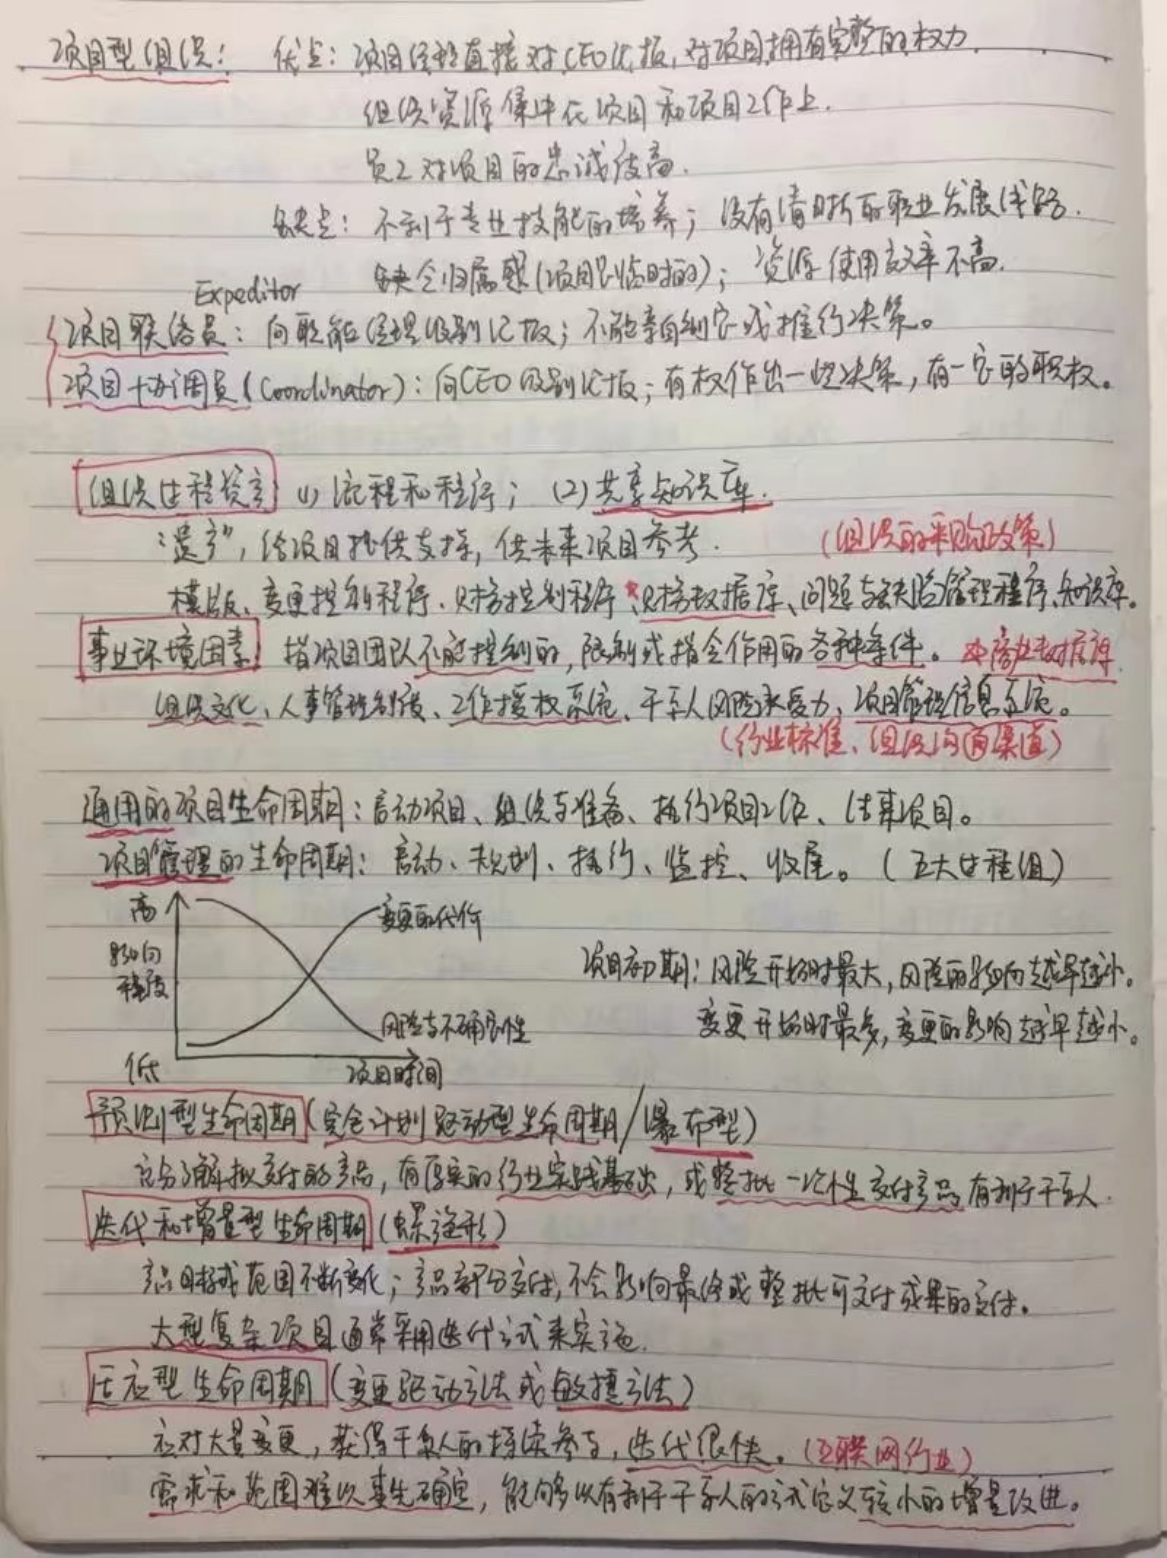 项目型组织： 优点：项目经理直接对CEO汇报，对项目拥有完整的权力.
组织资源集中在项目和项目工作上.
员工对项目的忠诚度高.
缺点：不利于专业技能的培养；没有清晰的职业发展线路.
缺乏归属感(项目是临时的)；资源使用效率不高.
Expeditor
项目联络员：向职能经理级别汇报；不能亲自制定或推行决策。
项目协调员(Coordinator)：向CEO级别汇报；有权作出一些决策，有一定的职权。
组织过程资产 (1) 流程和程序；(2)共享知识库.
“遗产”，给项目提供支持，供未来项目参考.
(组织的采购政策)
模版、变更控制程序、财务控制程序、财务数据库、问题与缺陷管理程序、知识库。
事业环境因素 指项目团队不能控制的，限制或指令作用的各种条件。 商业数据库
组织文化、人事管理制度、工作授权系统、干系人风险承受力、项目管理信息系统。
(行业标准、组织沟通渠道)
通用的项目生命周期：启动项目、组织与准备、执行项目工作、结束项目。
项目管理的生命周期：启动、规划、执行、监控、收尾。(五大过程组)
高
变更的代价
影响
程度
项目初期：风险开始时最大，风险的影响越早越小。
变更开始时最多，变更的影响越早越小。
风险与不确定性
低 项目时间
预测型生命周期(完全计划驱动型生命周期/瀑布型)
充分了解拟交付的产品，有厚实的行业实践基础，或整批一次性交付产品有利于干系人.
迭代和增量型生命周期(螺旋形)
产品目标或范围不断变化；产品部分交付，不会影响最终或整批可交付成果的交付。
大型复杂项目通常采用迭代方式来实施.
适应型生命周期(变更驱动方法或敏捷方法)
应对大量变更，获得干系人的持续参与，迭代很快。(互联网行业)
需求和范围难以事先确定，能够以有利于干系人的方式定义较小的增量改进。